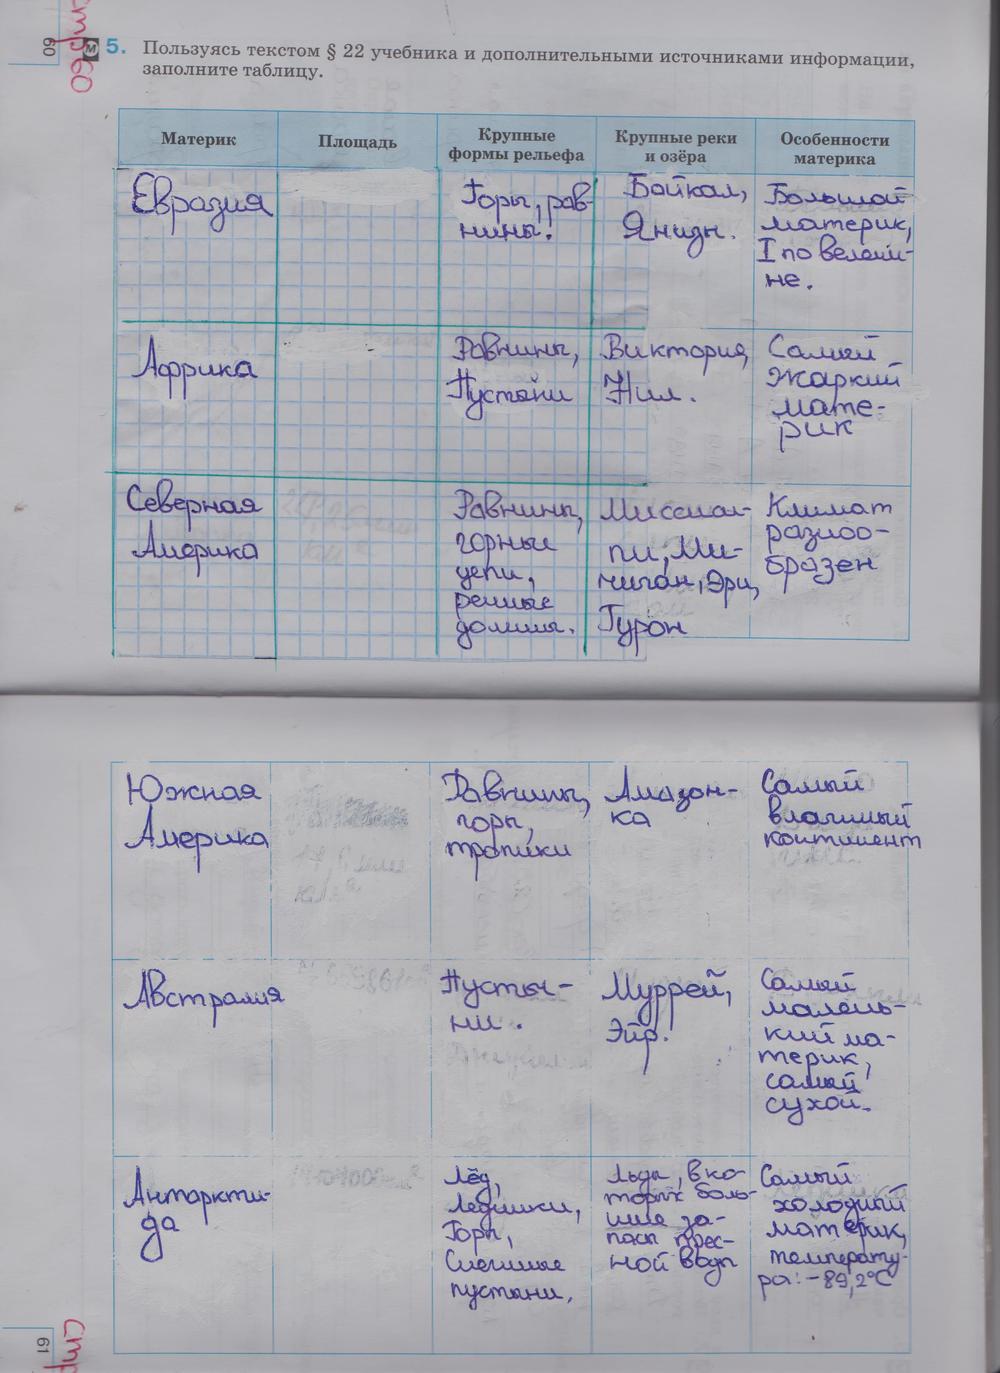 стр 60
60
М 5. Пользуясь текстом § 22 учебника и дополнительными источниками информации,
заполните таблицу.
Материк
Площадь
Крупные
формы рельефа
Крупные реки
и озёра
Особенности
материка
Евразия
Горы, рав-
нины.
Байкал,
Янцзы.
Большой
материк,
I по величи-
не.
Африка
Равнины,
Пустыни
Виктория,
Нил.
Самый
жаркий
мате-
рик
Северная
Америка
Равнины,
горные
цепи,
речные
долины.
Миссиси-
пи, Ми-
чиган, Эри,
Гурон
Климат
разноо-
бразен
Южная
Америка
Равнины,
горы,
тропики
Амазон-
ка
Самый
влажный
континент
Австралия
Пусты-
ни.
Муррей,
Эйр.
Самый
малень-
кий ма-
терик,
самый
сухой.
Антаркти-
да
Лёд,
Ледники,
Горы,
Снежные
пустыни.
Льды, в ко-
торых боль-
шие за-
пасы прес-
ной воды
Самый
холодный
материк,
температу-
ра: -89,2°С
61
стр